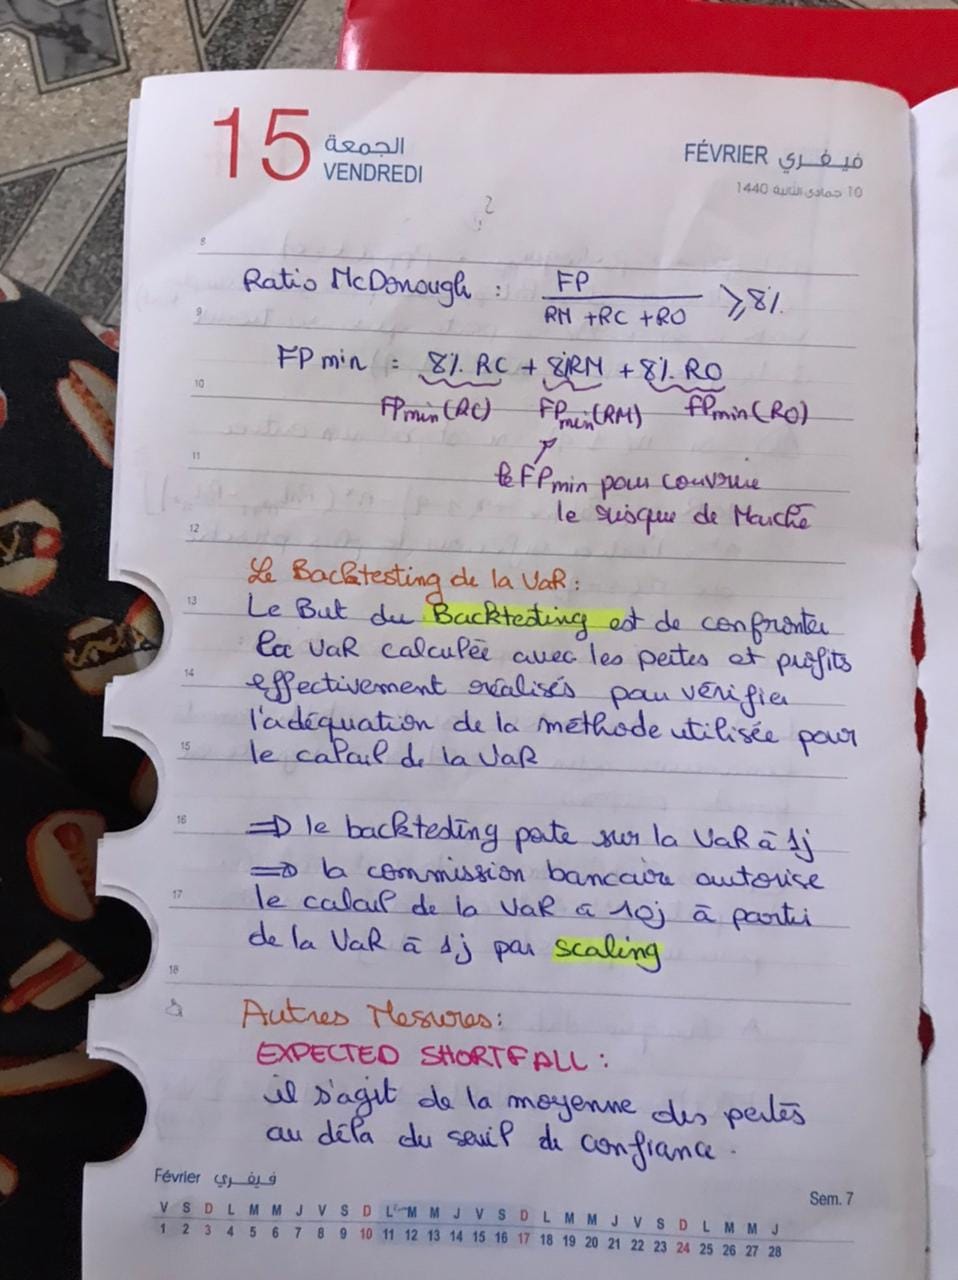 15
الجمعة
VENDREDI
FÉVRIER فيفري
10 جمادى الثانية 1440
8
Ratio McDonough : FP / RM + RC + RO ⩾ 8%
9
FP min = 8% RC + 8% RM + 8% RO
10
FPmin(RC) FPmin(RM) FPmin(RO)
11
le FPmin pour couvrir
le risque de Marché
12
Le Backtesting de la VaR :
13
Le But du Backtesting est de confronter
la VaR calculée avec les pertes et profits
14
effectivement réalisés pour vérifier
l'adéquation de la méthode utilisée pour
15
le calcul de la VaR
16
=> le backtesting porte sur la VaR à 1j
=> la commission bancaire autorise
17
le calcul de la VaR à 10j à partir
de la VaR à 1j par scaling
18
Autres Mesures :
EXPECTED SHORTFALL :
il s'agit de la moyenne des pertes
au déla du seuil de confiance.
Février فيفري
Sem. 7
V S D L M M J V S D L M M J V S D L M M J V S D L M M J
1 2 3 4 5 6 7 8 9 10 11 12 13 14 15 16 17 18 19 20 21 22 23 24 25 26 27 28